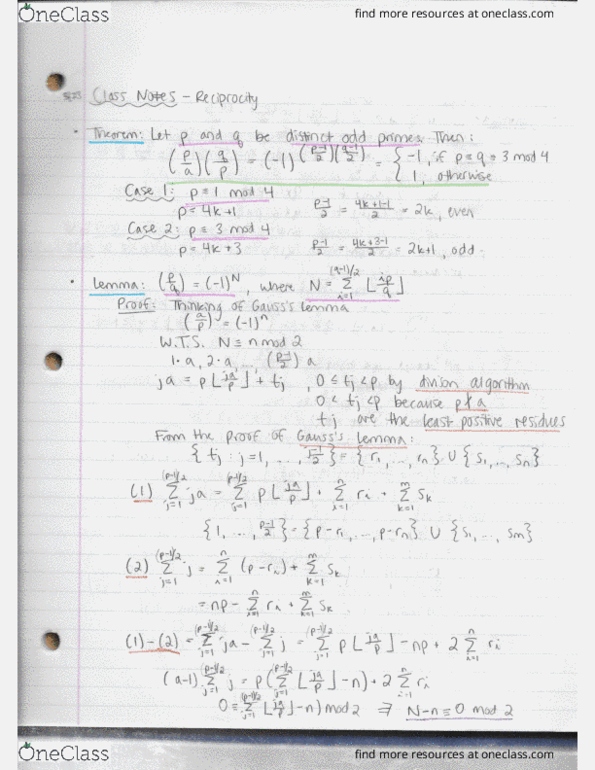 OneClass
find more resources at oneclass.com
Class Notes - Reciprocity
• Theorem: Let p and q be distinct odd primes. Then:
(p/q)(q/p) = (-1)^((p-1)/2)((q-1)/2) = { -1, if p ≡ q ≡ 3 mod 4
1, otherwise
Case 1: p ≡ 1 mod 4
p = 4k+1 (p-1)/2 = (4k+1-1)/2 = 2k, even
Case 2: p ≡ 3 mod 4
p = 4k+3 (p-1)/2 = (4k+3-1)/2 = 2k+1, odd
• Lemma: (p/q) = (-1)^N, where N = Σ_{i=1}^{(q-1)/2} ⌊ip/q⌋
Proof: Thinking of Gauss's Lemma
(a/p) = (-1)^n
W.T.S. N ≡ n mod 2
1·a, 2·a, ..., ((p-1)/2) a
ja = p⌊ja/p⌋ + tj, 0 ≤ tj < p by division algorithm
0 < tj < p because p∤a
tj are the least positive residues
From the proof of Gauss's Lemma:
{tj : j=1, ..., (p-1)/2} = {r1, ..., rn} ∪ {s1, ..., sm}
(1) Σ_{j=1}^{(p-1)/2} ja = Σ_{j=1}^{(p-1)/2} p⌊ja/p⌋ + Σ_{i=1}^{n} ri + Σ_{k=1}^{m} sk
{1, ..., (p-1)/2} = {p-r1, ..., p-rn} ∪ {s1, ..., sm}
(2) Σ_{j=1}^{(p-1)/2} j = Σ_{i=1}^{n} (p-ri) + Σ_{k=1}^{m} sk
= np - Σ_{i=1}^{n} ri + Σ_{k=1}^{m} sk
(1)-(2) = Σ_{j=1}^{(p-1)/2} ja - Σ_{j=1}^{(p-1)/2} j = Σ_{j=1}^{(p-1)/2} p⌊ja/p⌋ - np + 2 Σ_{i=1}^{n} ri
(a-1) Σ_{j=1}^{(p-1)/2} j = p(Σ_{j=1}^{(p-1)/2} ⌊ja/p⌋ - n) + 2 Σ_{i=1}^{n} ri
0 ≡ Σ_{j=1}^{(p-1)/2} ⌊ja/p⌋ - n) mod 2 ⇒ N-n ≡ 0 mod 2
OneClass
find more resources at oneclass.com